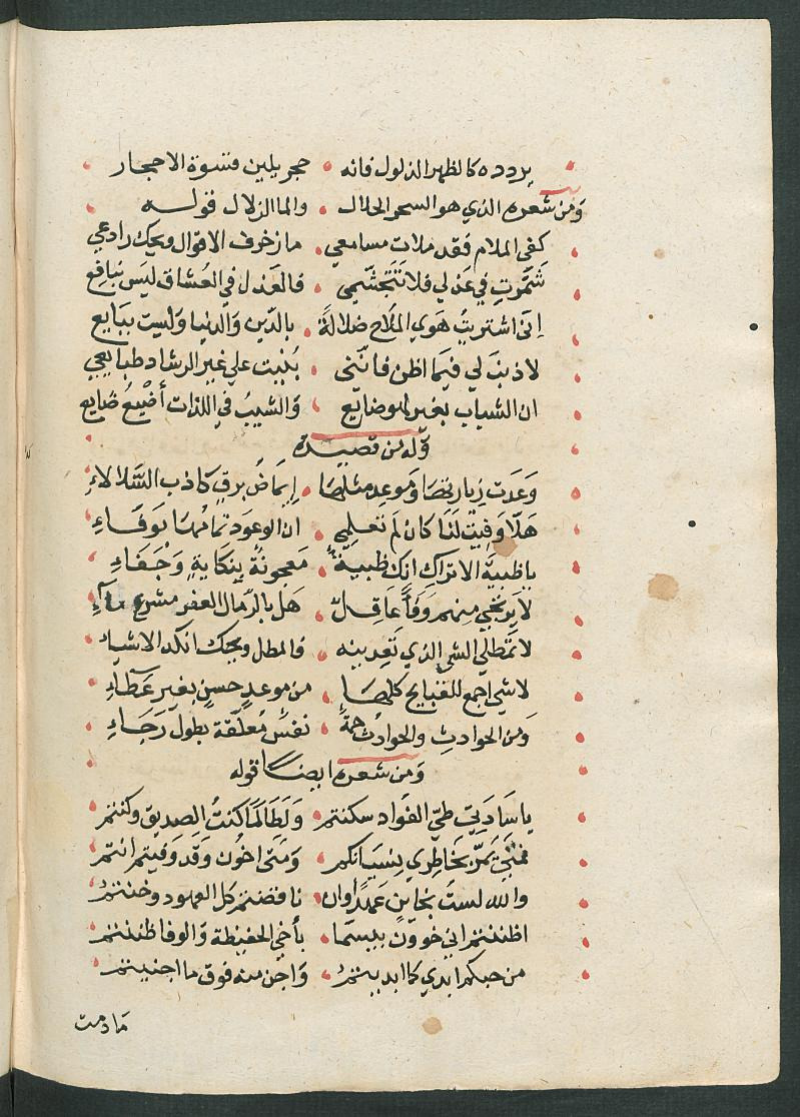 يردده كالظهر الذلول فانه حجر يلين وقسوة الاحجار
ومن شعره الذي هو السحر الحلال والما الزلال قوله
كفي الملام فقد ملات مسامعي ما زخرف الاقوال ويحك رادعي
شمّرتِ في عذلي فلا تتجشّمي فالعذل في العُشاق ليس بنافع
اني اشتريتُ هوي الملاح ضلالةً بالدّين والدنيا ولست ببايع
لا ذنب لي فيما اظن فانّني بُنيت علي غير الرشاد طبايعي
ان الشباب بغير لهو ضايع والشيبُ في اللذات أضْيعُ ضايع
وله من قصيدة
وعدت زيارتها وموعد مثلها إيماضُ برقٍ كاذب التلالاءِ
هلّا وفيتِ لنا كان لم تعلمي ان الوعود تمامُها بوفاءِ
يا ظبية الاتراك انك ظبيةٌ معجونةٌ بنكايةٍ وجفاءِ
لا يرتجي منهم وفاً عاقلٌ هل بالرّمال العفر مشرع مآءِ
لا تمطلي الشي الذي تعدينه فالمطل ويحك انكد الاشياء
لا شي اجمع للقبايح كلها من موعدٍ حسنٍ بغير عطآءِ
ومن الحوادثِ والحوادثُ جمةٌ نفسٌ مُعلّقة بطول رجاءِ
ومن شعره ايضا قوله
يا سادتي طيّ الفواد سكنتم ولطالما كنتُ الصديق وكنتم
فمتي يمرّ بخاطري نسيانكم ومتى اخون وقد وفيتم انتم
والله لست بخاينٍ عهداً وان ناقضتم كل العهود وخنتمُ
اظننتم اني خوون بيسما باخي الحفيظة والوفا ظننتم
من حبكم ابدي كما ابديتمُ واجن منه فوق ما اجنيتم
ما دمت